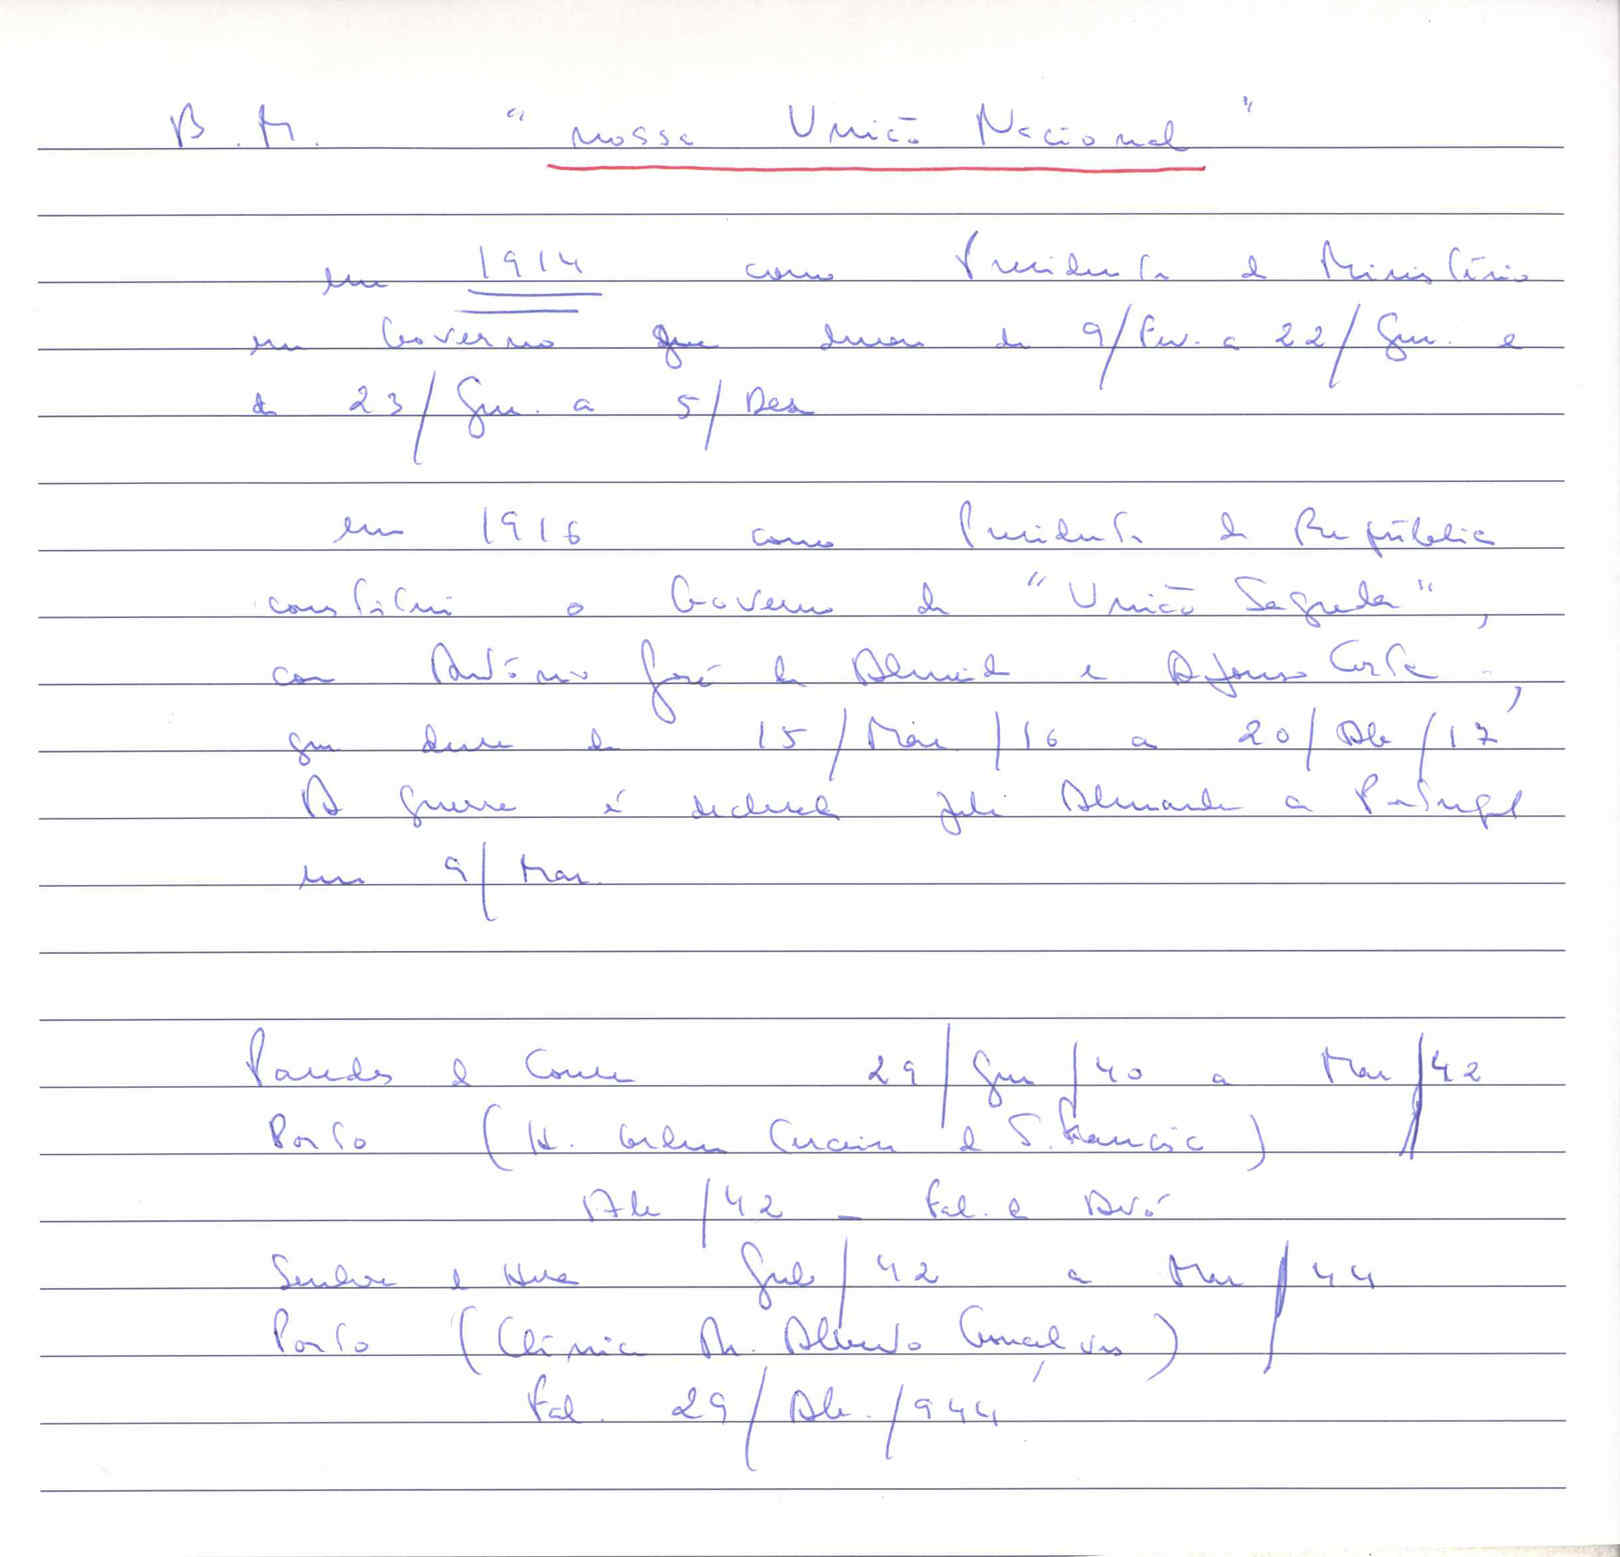 B. M. "nossa União Nacional"
em 1914 como Presidente de Ministério
em Governo que durou de 9/Fev. a 22/Jun. e
de 23/Jun. a 5/Dez
em 1916 como Presidente da República
constitui o Governo da "União Sagrada",
com António José de Almeida e Afonso Costa -,
que dura de 15/Mar/16 a 20/Abr/17
A guerra é declarada pela Alemanha a Portugal
em 9/Mar.
Paredes de Coura 29/Jun/40 a Mar/42
Porto (H. Ordem Terceira de S. Francisco)
Abr/42 - Fal. a Avó
Senhora da Hora Jul/42 a Mar/44
Porto (Clínica Dr. Alberto Gonçalves)
Fal. 29/Abr./944